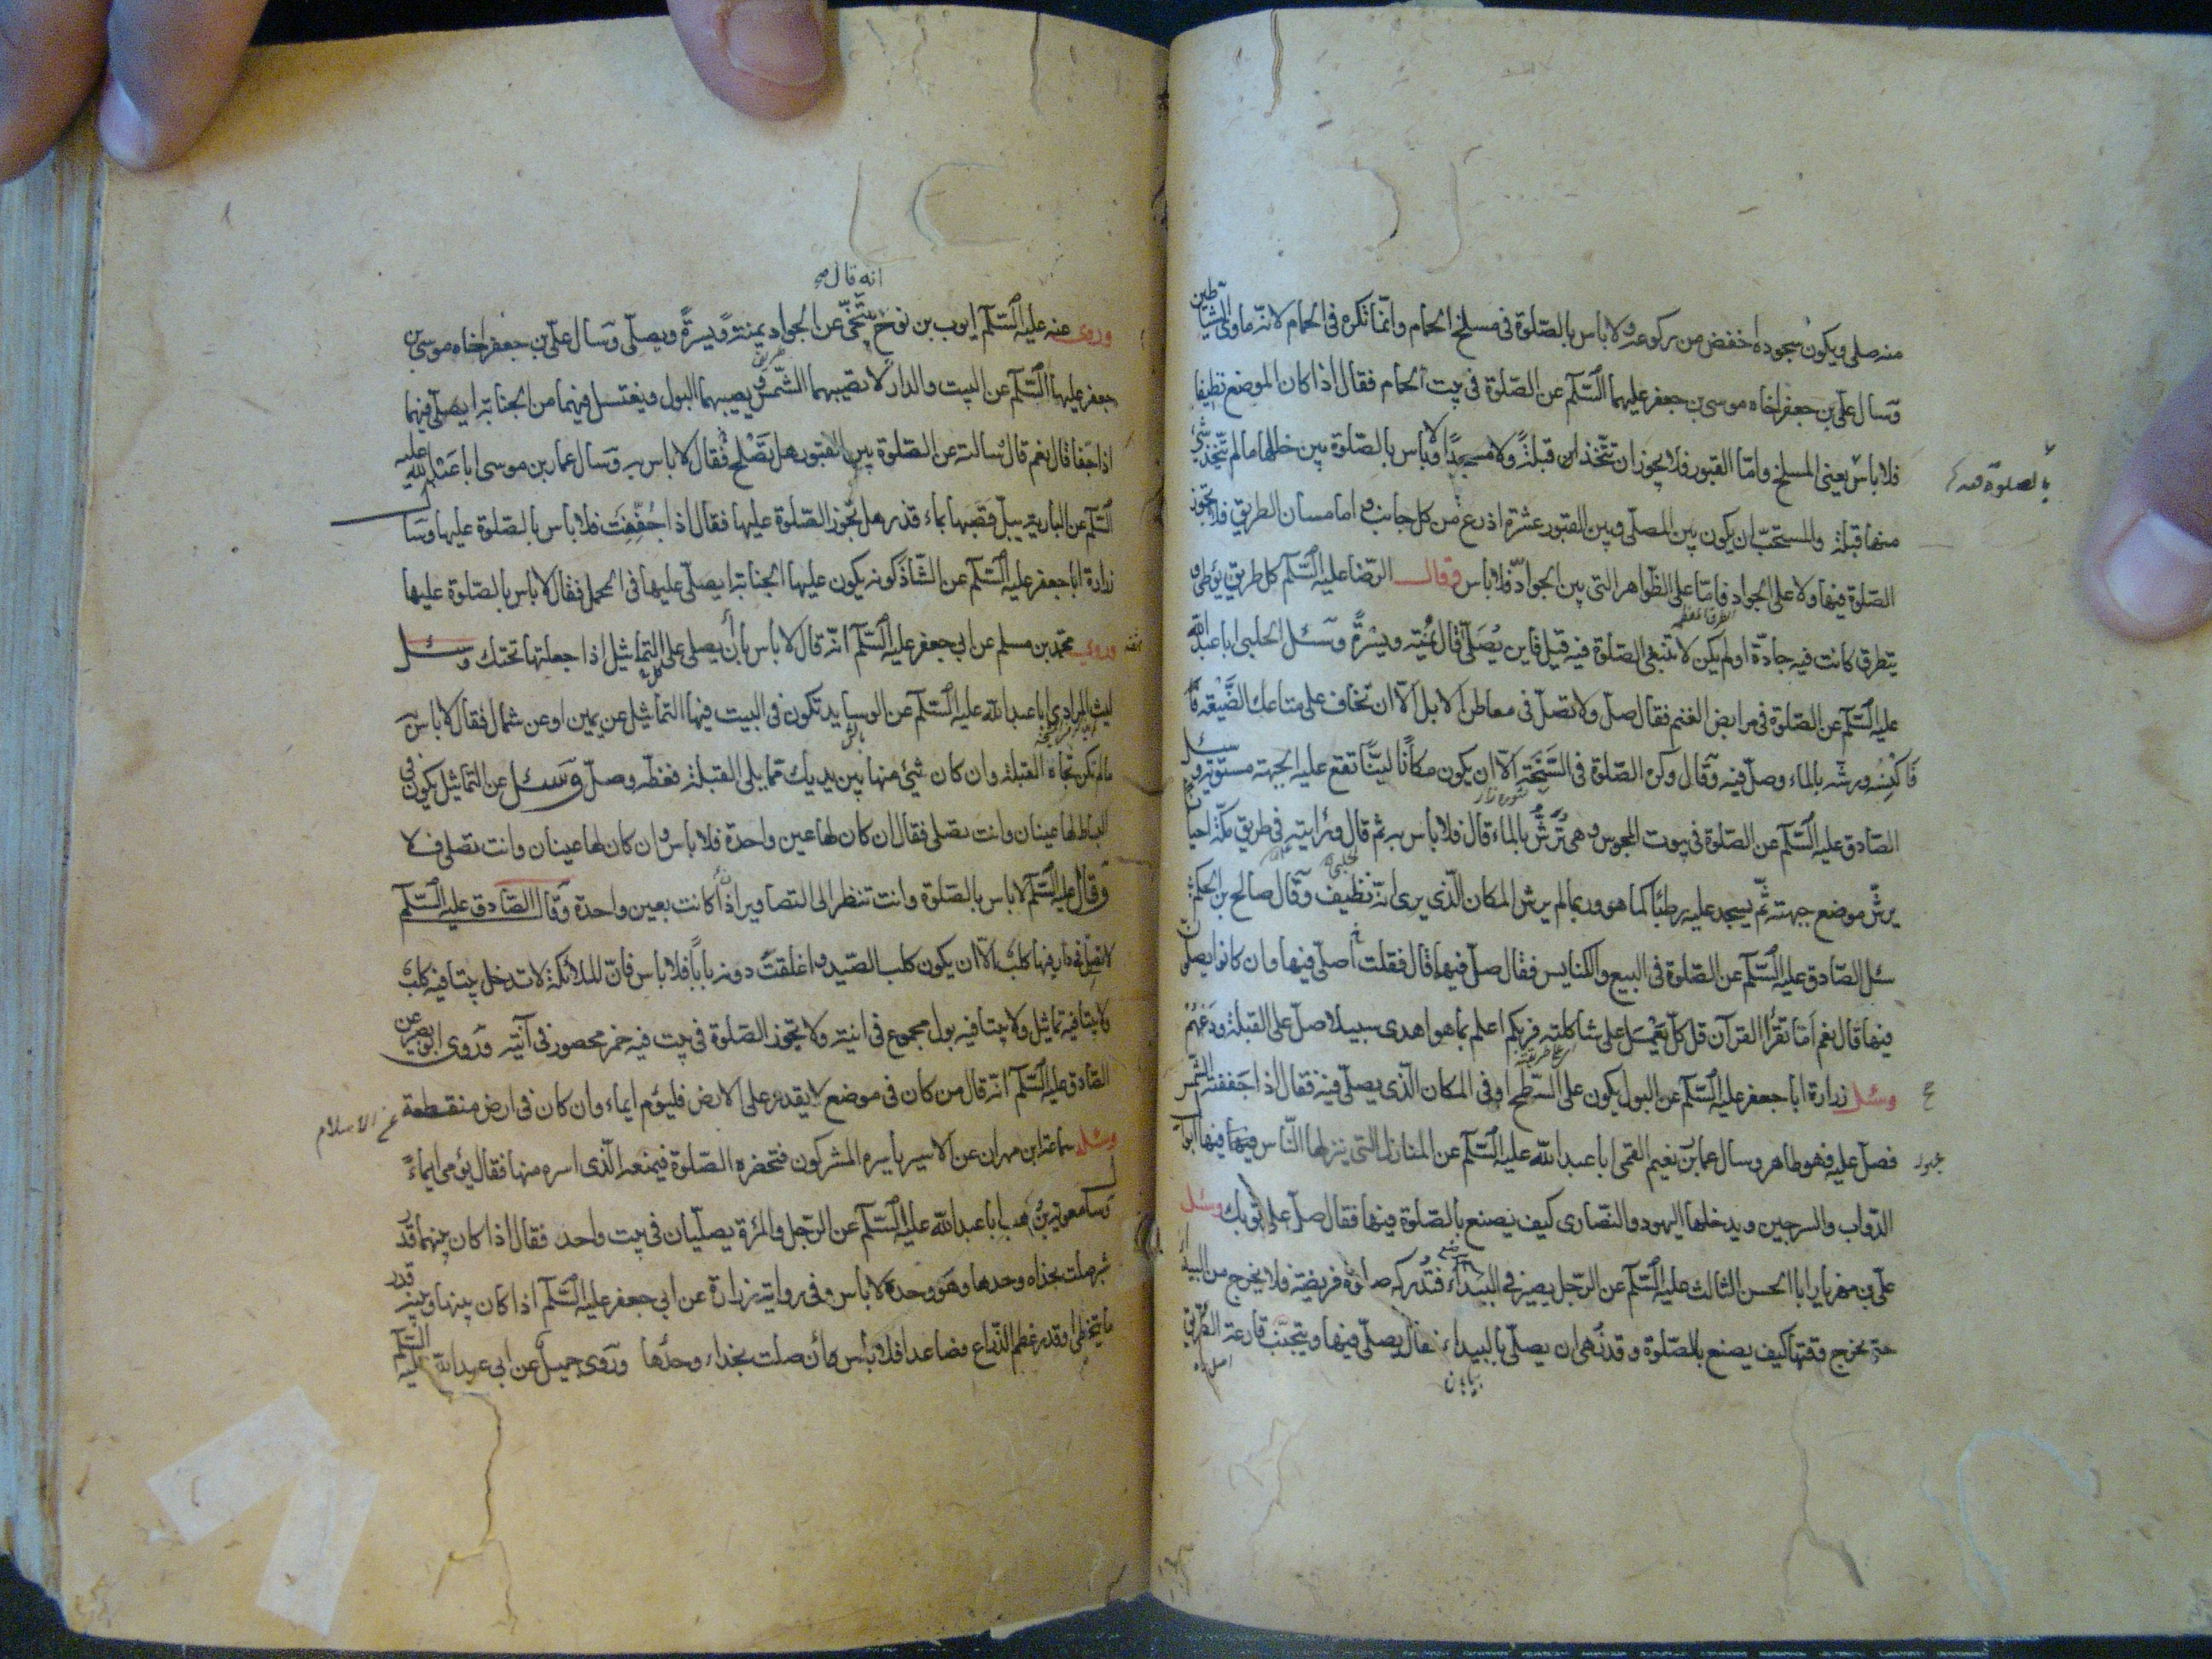 منه صلى ويكون سجوده اخفض من ركوعه ولا باس بالصّلوة فى مسلخ الحمام وانّما تكره فى الحمام لانّه ماوى الشياطين
وسال علىّ بن جعفر اخاه موسى بن جعفر عليهما السّلم عن الصّلوة فى بيت الحمام فقال اذا كان الموضع نظيفا
فلا باس يعنى المسلخ وامّا القبور فلا يجوز ان تتّخذ قبلةً ولا مسجدًا ولا باس بالصّلوة بين خللها ما لم تتّخذ شئ
بالصلوة
منها قبلة والمستحبّ ان يكون بين المصلّى وبين القبور عشرة اذرع من كل جانب واما مسان الطريق فلا يجوز
الصّلوة فيها ولا على الجواد فامّا على الظّواهر التى بين الجوادّ فلا باس وقال الرّضا عليه السّلم كل طريق يوطى و
يتطرق كانت فيه جادّة اولم يكن لا ينبغى الصّلوة فيه قيل فاين يُصَلّى قال يُمْنة ويسْرةً وسئل الحلبى ابا عبد الله
عليه السّلم عن الصّلوة فى مرابض الغنم فقال صلّ ولا تصلّ فى معاطن الابل الّا ان تخاف على متاعك الضَّيْعَة
فاكنسْه ورشّه بالماء وصلّ فيه وقال وكره الصّلوة فى السَّبَخَة الّا ان يكون مكانًا ليّنًا تقع عليه الجبهة مستوية وسئل
الصّادق عليه السّلم عن الصّلوة فى بيوت المجوس وهى تُرَشُّ بالماء قال فلا باس به ثم قال ورايته فى طريق مكّة احيانا
يرشّ موضع جبهته ثمّ يسجد عليه رطبًا كما هو وربما لم يرش المكان الّذى يرى انّه نظيف وقال صالح بن الحكم
سئل الصّادق عليه السّلم عن الصّلوة فى البيع والكنايس فقال صلّ فيها قال فقلت اصلّى فيها وان كانوا يصلّون
فيها قال نعم اما تقرُا القرآن قل كلّ يعْمَل على شاكلته فربكم اعلم بما هو اهدى سبيلا صلّ على القبلة ودَعْهُمْ
وسئل زرارة ابا جعفر عليه السّلم عن البول يكون على السّطح او فى المكان الّذى يصلّى فيه فقال اذا جففته الشمس
فصلّ عليه فهو طاهر وسال عمار بن نعيم القمى ابا عبد الله عليه السّلم عن المنازل التى ينزلها النّاس فيها ابوال
الدّواب والسرجين ويدخلها اليهود والنّصارى كيف نصنع بالصّلوة فيها فقال صلّ على ثوبك وسئل
علىّ بن مهزيار ابا الحسن الثالث عليه السّلم عن الرّجل يصير فى البيداء فتدركه صلوة فريضة فلا يخرج من البيداء
حتى يخرج وقتها كيف يصنع بالصّلوة وقد نُهى ان يصلّى بالبيداء فقال يصلّى فيها ويتجنّب قارعة الطّريق
انه قال
وروى عنه عليه السّلم ايوب بن نوح يتنحّى عن الجواد يمنةً ويسرةً ويصلّى وسال علىّ بن جعفر اخاه موسى بن
جعفر عليهما السّلم عن البيت والدار لا تصيبهما الشّمس ويصيبهما البول ويغتسل فيهما من الجنابة ايصلّى فيهما
اذا جفّا قال نعم قال سالته عن الصّلوة بين القبور هل تصْلح فقال لا باس به وسال عمار بن موسى ابا عبد الله عليه
السّلم عن البارية يبلّ قصبها بماء قذر هل تجوز الصّلوة عليها فقال اذا جُفّفِت فلا باس بالصّلوة عليها وسال
زرارة ابا جعفر عليه السّلم عن الشّاذكونة يكون عليها الجنابة ايصلّى عليها فى المحمل فقال لا باس بالصّلوة عليها
وروى محمّد بن مسلم عن ابى جعفر عليه السّلم انّه قال لا باس بأن يصلى على التماثيل اذا جعلتها تحتك وسئل
ليث المرادى ابا عبد الله عليه السّلم عن الوسايد تكون فى البيت فيها التماثيل عن يمين او عن شمال فقال لا باس به
ما لم تكن تجاه القبلة وان كان شئ منها بين يديك ممّا يلى القبلة فغطّه وصلّ وسئل عن التماثيل يكون فى
البساط لها عينان وانت تصلّى فقال ان كان لها عين واحدة فلا باس وان كان لها عينان وانت تصلى فلا
وقال عليه السّلم لا باس بالصّلوة وانت تنظر الى التصاوير اذا كانت بعين واحدة وقال الصّادق عليه السّلم
لا تصلّ فى دار فيها كلب الّا ان يكون كلب الصّيد واغلقت دونه بابًا فلا باس فانّ الملائكة لا تدخل بيتا فيه كلب
ولا بيتا فيه تماثيل ولا بيتا فيه بول مجموع فى انية ولا يجوز الصّلوة فى بيت فيه خمر محصور فى آنية وروى ابو بصير عن
الصّادق عليه السّلم انّه قال من كان فى موضع لا يقدر على الارض فليؤم ايماء وان كان فى ارض منقطعة
عن الاسلام
وسئل سماعة ابن مهران عن الاسير ياسره المشركون فتحضره الصّلوة فيمنعه الّذى اسره منها فقال يؤمى ايماءً
وسال معوية بن وهب ابا عبد الله عليه السّلم عن الرّجل والمرءة يصلّيان فى بيت واحد فقال اذا كان بينهما قدر
شبر صلت بحذاه وحدها وهو وحده لا باس وفى رواية زرارة عن ابى جعفر عليه السّلم اذا كان بينها وبينه قدر
ما يتخطى او قدر عظم الذّراع فصاعدا فلا باس وان صلت بحذاه وحدها وروى جميل عن ابى عبد الله عليه السّلم